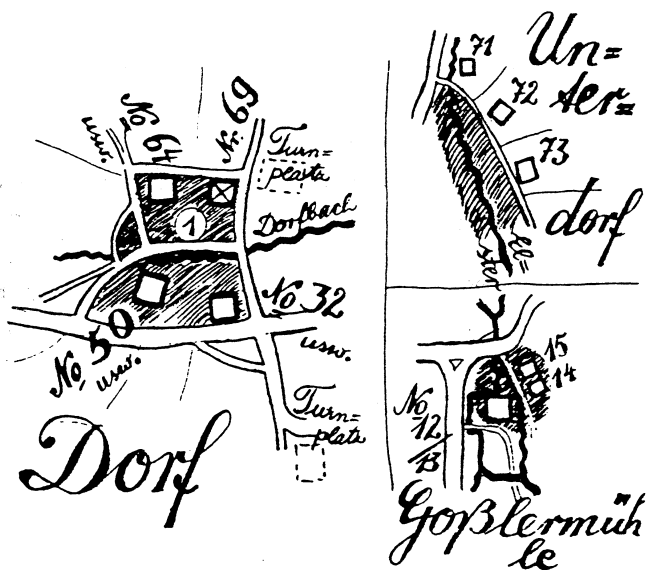 No 64
usw.
Nr. 69
Turn=
platz
1
Dorfbach
No 32
usw.
No 50
usw.
Turn=
platz
Dorf
71
72
73
Un=
ter=
dorf
El=
ster
15
14
No
12
13
Goßlermüh
le